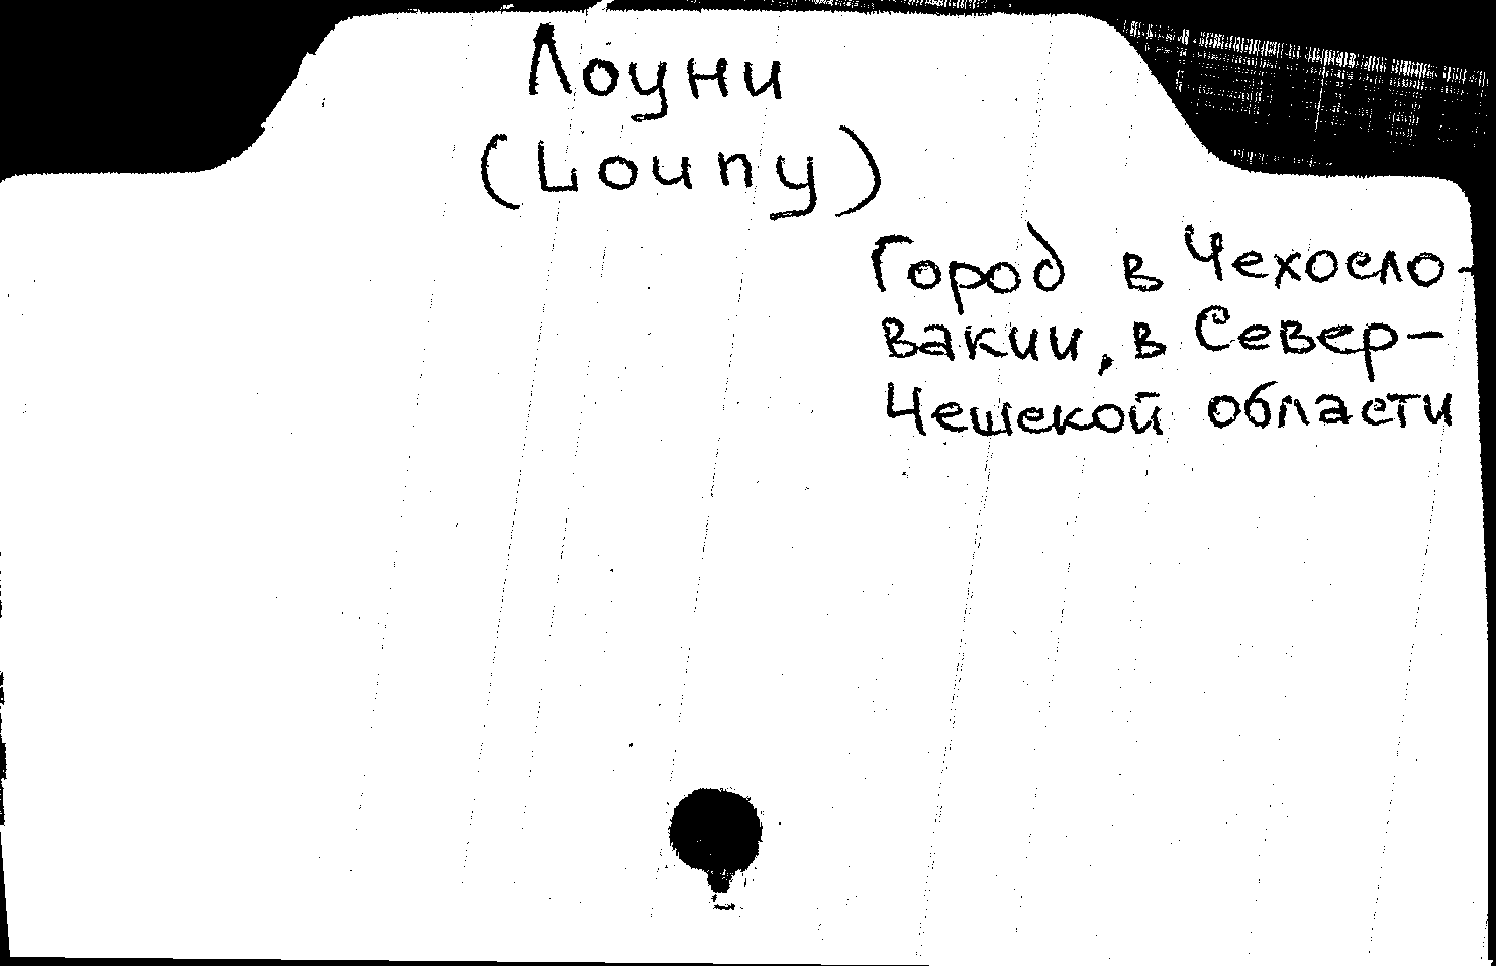 Лоуни
(Louny)
Город в Чехосло-
вакии, в Север-
Чешской области